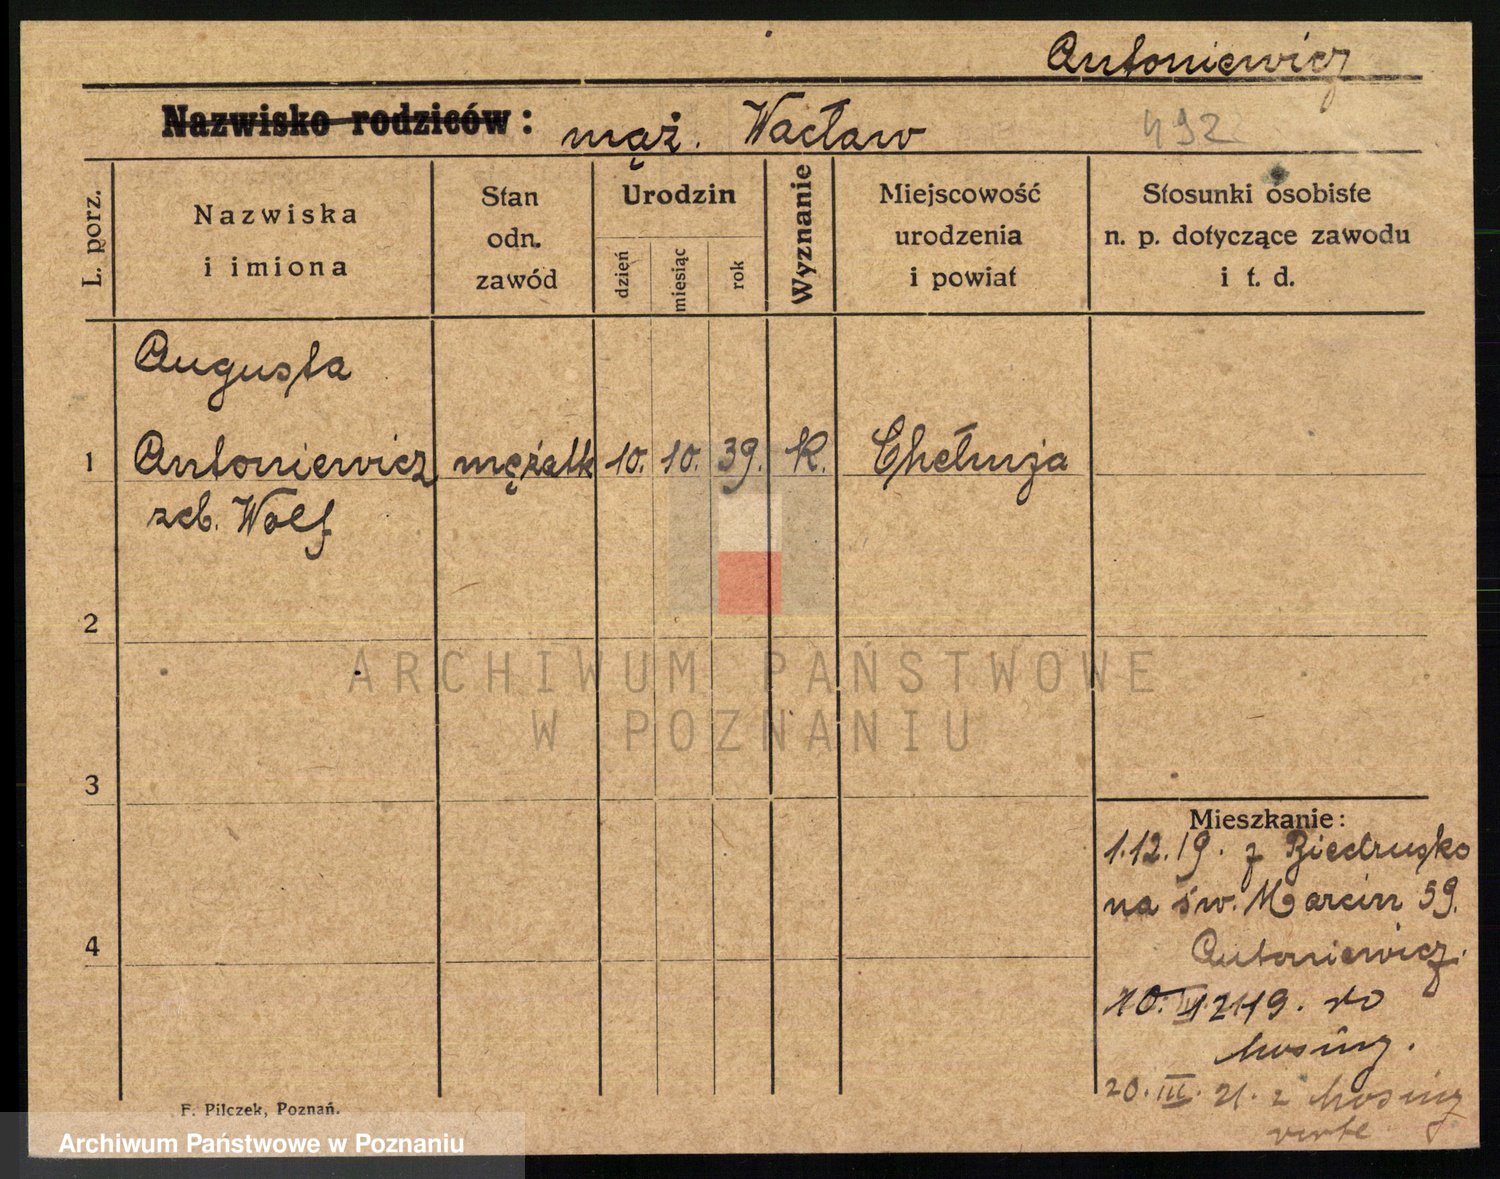 Antoniewicz
Nazwisko rodziców: mąż. Wacław
492
L. porz.
Nazwiska
i imiona
Stan
odn.
zawód
Urodzin
dzień
miesiąc
rok
Wyznanie
Miejscowość
urodzenia
i powiat
Stosunki osobiste
n. p. dotyczące zawodu
i t. d.
Augusta
1 Antoniewicz mężatk 10. 10. 39. K. Chełmża
zeb. Wolf
2
ARCHIWUM PAŃSTWOWE
W POZNANIU
3
Mieszkanie:
1.12.19. z Biedrusko
na św. Marcin 59.
4
Antoniewicz.
do
Mosiny.
20. III. 21. z Mosiny
verte
F. Pilczek, Poznań.
Archiwum Państwowe w Poznaniu